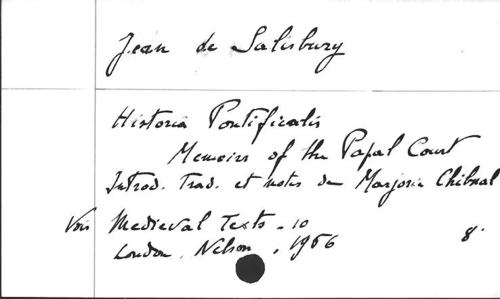 Jean de Salisbury
Historia Pontificalis
Memoirs of the Papal Court
Introd. Trad. et notes de Marjorie Chibnal
Voir Medieval Texts - 10
London, Nelson, 1956 8°